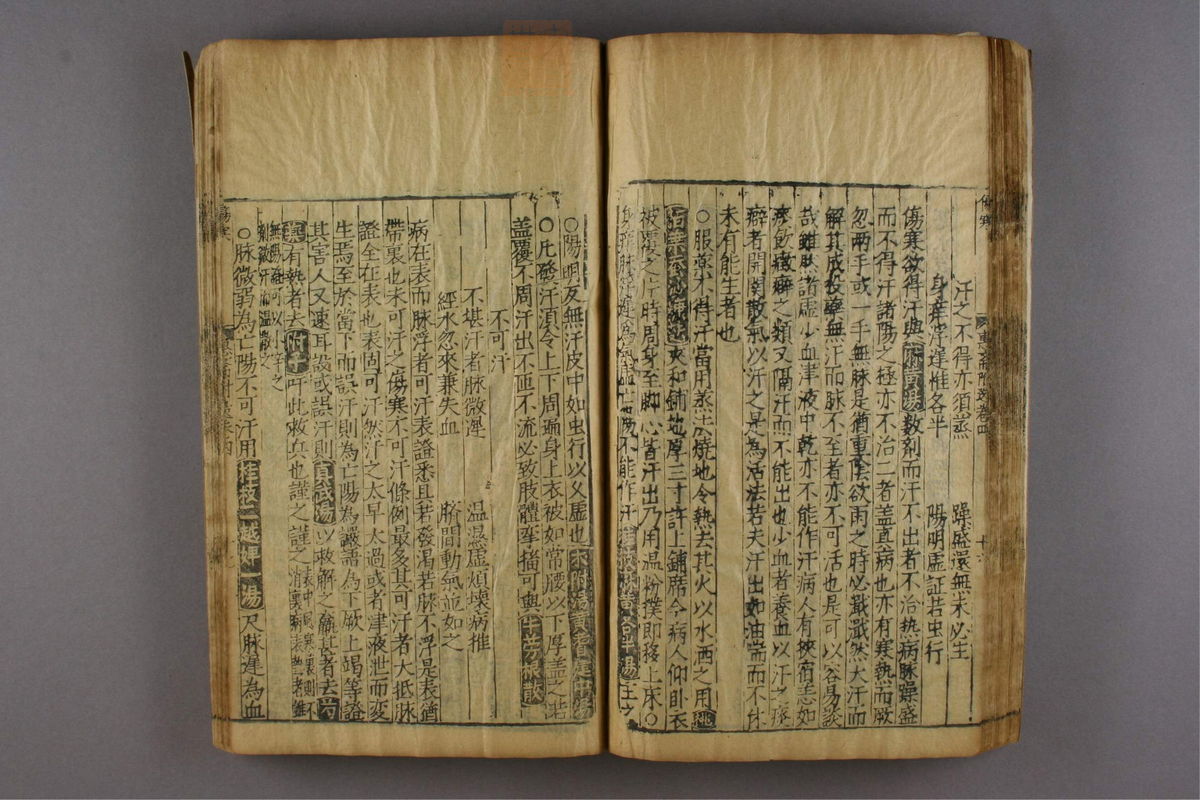 汗之不得亦須蒸 躁盛還無未必生
身痒浮遲惟各半 陽明虛証若虫行
傷寒欲得汗與麻黃湯數劑而汗不出者不治熱病脉躁盛
而不得汗諸陽之極亦不治二者盖真病也亦有寒熱而厥
忽兩手或一手無脉是猶重陰欲雨之時必戰然大汗而
解其或投藥無汗而脉不至者亦不可活也是可以容易談
哉雖然諸虛少血津液中乾亦不能作汗病人有挾宿恙如
飲癖之類又隔汗而不能出也少血者養血以汗之痰
癖者開關散氣以汗之是為活法若夫汗出如油喘而不休
未有能生者也
○服藥不得汗當用蒸法燒地令熱去其火以水洒之用桃
夾和鋪地厚三寸許上鋪席令病人仰卧衣
被覆之片時周身至脚心皆汗出乃用温粉撲即移上床○
不能作汗桂枝麻黃各半湯主之
○陽明反無汗皮中如虫行以久虛也术附湯黃建中湯
○凡發汗須令上下周遍身上衣被如常腰以下厚盖之若
盖覆不周汗出不匝不流必致肢體拘可與牛旁根散
不可汗
不堪汗者脉微遲 温温虛煩壞病推
經水忽來兼失血 臍間動氣並如之
病在表而脉浮者可汗表證悉具若發渴若脉不浮是表猶
帶裏也未可汗之傷寒不可汗條例最多其可汗者大抵脉
證全在表也表固可汗然汗之太早太過或者津液泄而變
生焉至於當下而誤汗則為亡陽為讝語為下厥上竭等證
其害人又速耳設或誤汗則真武湯以救解之甚者去芍
藥有熱者去附子吁此救兵也謹之謹之
無陽強可以小辛之
微汗而温散之
○脉微弱為亡陽不可汗用桂枝二越婢一湯尺脉遲為血
傷寒